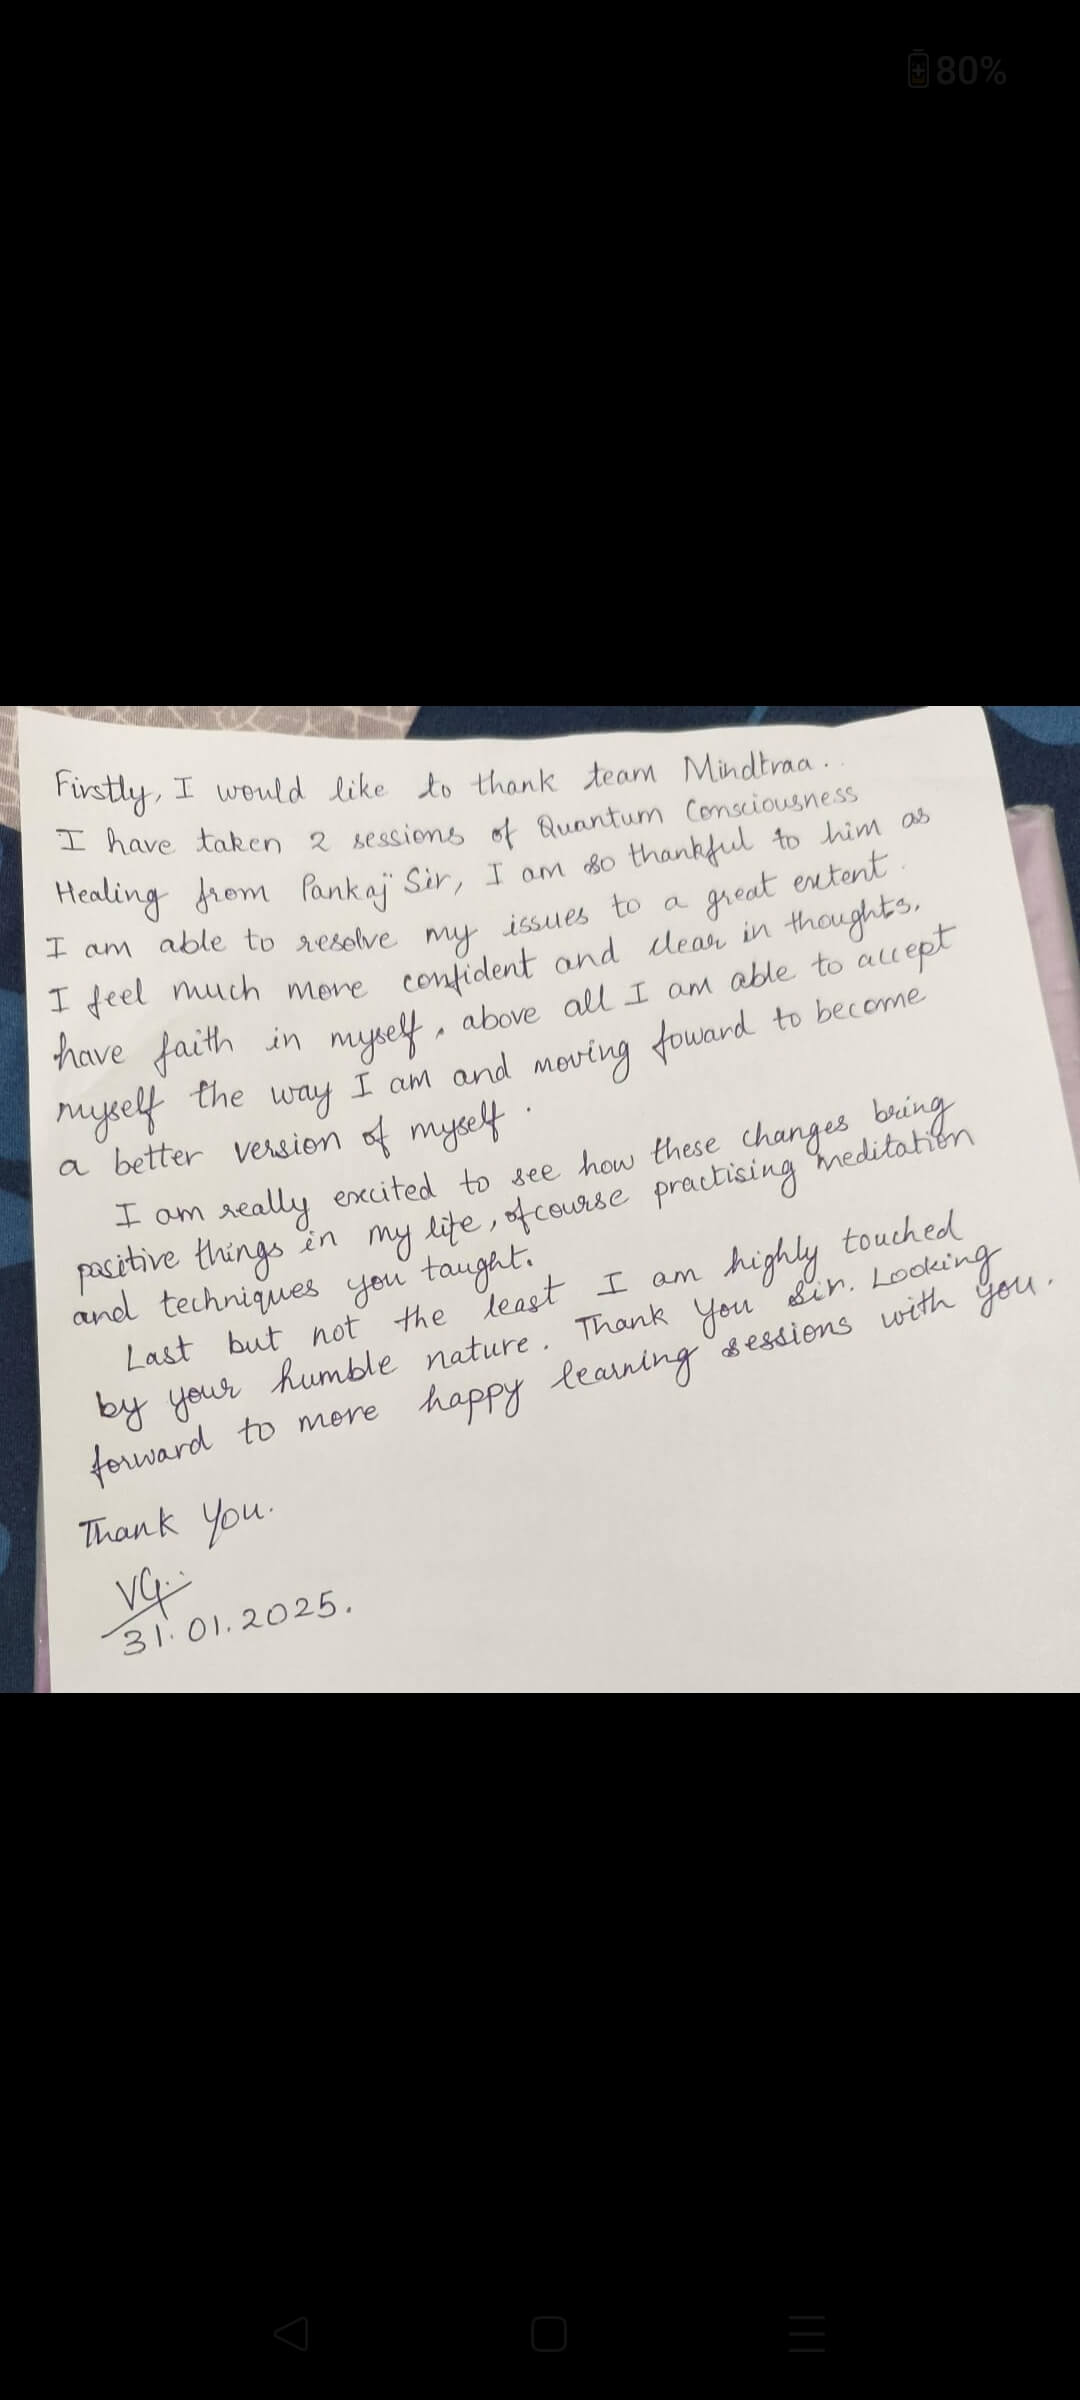 80%
Firstly, I would like to thank team Mindtraa..
I have taken 2 sessions of Quantum Consciousness
Healing from Pankaj Sir, I am so thankful to him as
I am able to resolve my issues to a great extent.
I feel much more confident and clear in thoughts,
have faith in myself, above all I am able to accept
myself the way I am and moving foward to become
a better version of myself.
I am really excited to see how these changes bring
positive things in my life, ofcourse practising meditation
and techniques you taught.
Last but not the least I am highly touched
by your humble nature. Thank You Sir. Looking
forward to more happy learning sessions with you.
Thank You.
VG..
31.01.2025.